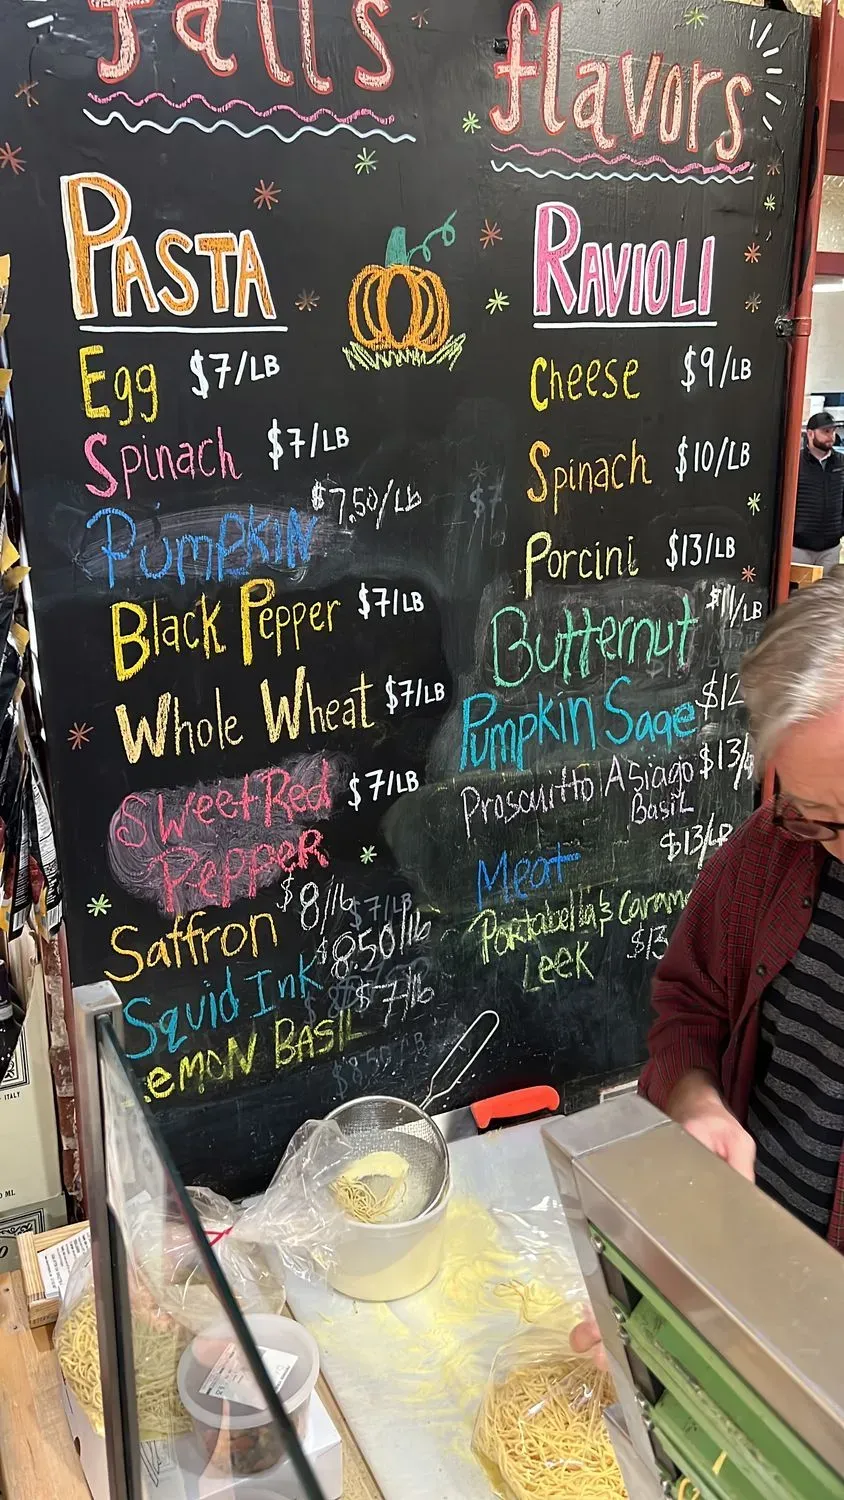 falls flavors
PASTA
Egg $7/LB
Spinach $7/LB
Pumpkin $7.50/Lb
Black Pepper $7/LB
Whole Wheat $7/LB
Sweet Red $7/LB
Pepper
Saffron $8/lb
$7/LB
Squid Ink $8.50/lb
Lemon BASIL $7/lb
$8.50/LB
RAVIOLI
Cheese $9/LB
Spinach $10/LB
Porcini $13/LB
Butternut $11/LB
Pumpkin Sage $12
Proscuitto Asiago $13/
Basil
Meat $13/LB
Portabella & Carame
Leek $13
$7
ITALY
ML